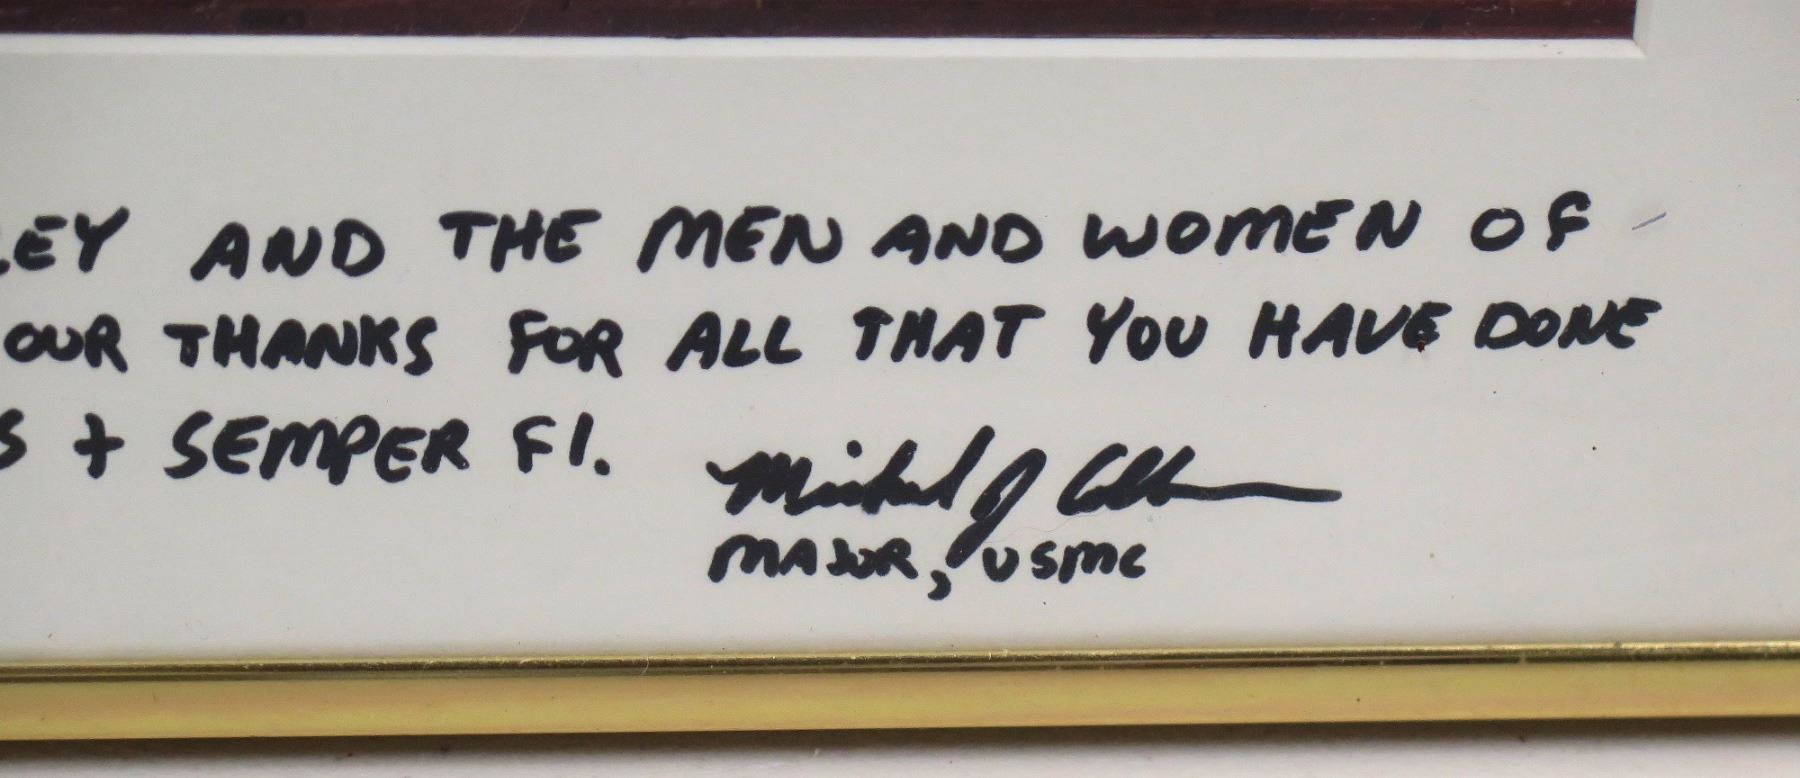 EY AND THE MEN AND WOMEN OF
OUR THANKS FOR ALL THAT YOU HAVE DONE
S + SEMPER FI.
Michael J
MAJOR, USMC